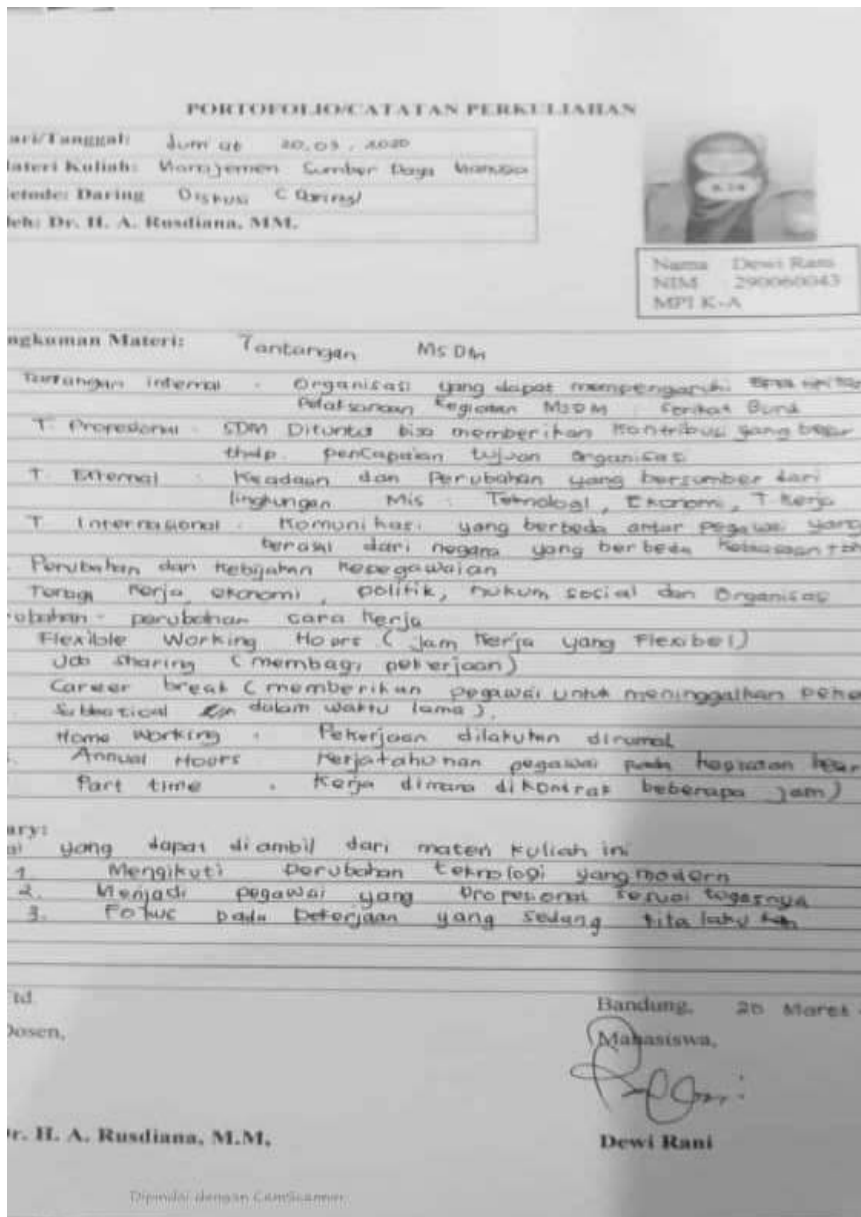 PORTOFOLIO/CATATAN PERKULIAHAN
ari/Tanggal: Jum'at 20, 03, 2020
ateri Kuliah: Manajemen Sumber Daya Manusia
etode: Daring Diskusi ( Daring)
leh: Dr. H. A. Rusdiana, MM.
Nama Dewi Rani
NIM 290060043
MPI K-A
ngkuman Materi: Tantangan MSDM
Tantangan internal : Organisasi yang dapat mempengaruhi
Pelaksanaan Kegiatan MSDM : Serikat
T. Propesional : SDM Dituntut bisa memberikan Kontribusi yang besar
thdp. pencapaian tujuan organisasi
T. External : Keadaan dan Perubahan yang bersumber dari
lingkungan Mis : Teknologi, Ekonomi, T Kerja
T. Internasional : Komunikasi yang berbeda antar pegawai yang
berasal dari negara yang berbeda
Perubahan dan Kebijakan Kepegawaian
Kerja, ekonomi, politik, hukum social dan Organisasi
ubahan - perubahan cara Kerja
Flexible Working Hours ( Jam Kerja yang Flexibel)
Job sharing ( membagi pekerjaan)
Career break ( memberikan pegawai untuk meninggalkan peke
dalam waktu lama ).
Home Working : Pekerjaan dilakukan dirumah
Annual Hours : Kerja tahunan pegawai pada kegiatan
Part time : Kerja dimana dikontrak beberapa jam)
ary:
ai yang dapat di ambil dari materi kuliah ini
1. Mengikuti Perubahan teknologi yang modern
2. Menjadi pegawai yang propesional sesuai tugasnya
3. Fokus pada pekerjaan yang sedang kita laku kan
td
Bandung, 20 Maret
Dosen,
Mahasiswa,
r. H. A. Rusdiana, M.M,
Dewi Rani
Dipindai dengan CamScanner